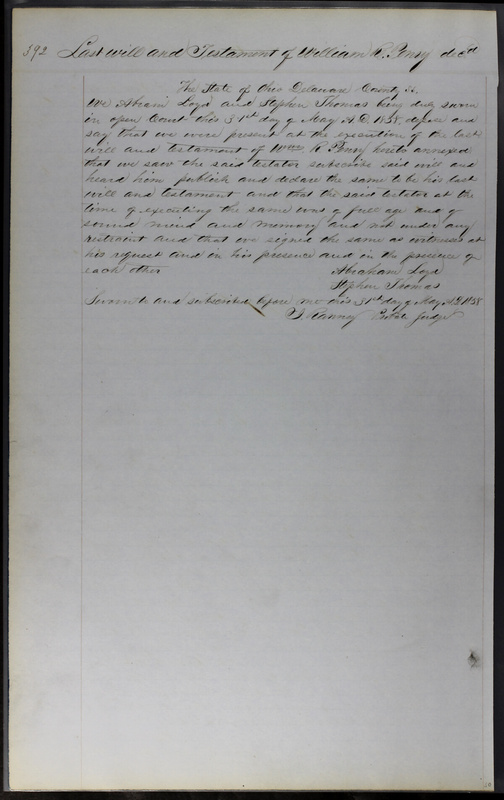 392 Last will and Testament of William R. Penry decd
The State of Ohio Delaware County Ss.
We Abram Loyd and Stephen Thomas being duly sworn
in open Court this 31st day of May A.D. 1858, depose and
say that we were present at the execution of the last
will and testament of Wm R Penry hereto annexed
that we saw the said testator subscribe said will and
heard him publish and declare the same to be his last
will and testament and that the said testator at the
time of executing the same was of full age and of
sound mind and memory and not under any
restraint and that we signed the same as witnesses at
his request and in his presence and in the presence of
each other
Abraham Loyd
Stephen Thomas
Sworn to and subscribed before me this 31st day of May A.D. 1858
Ranney Probate Judge